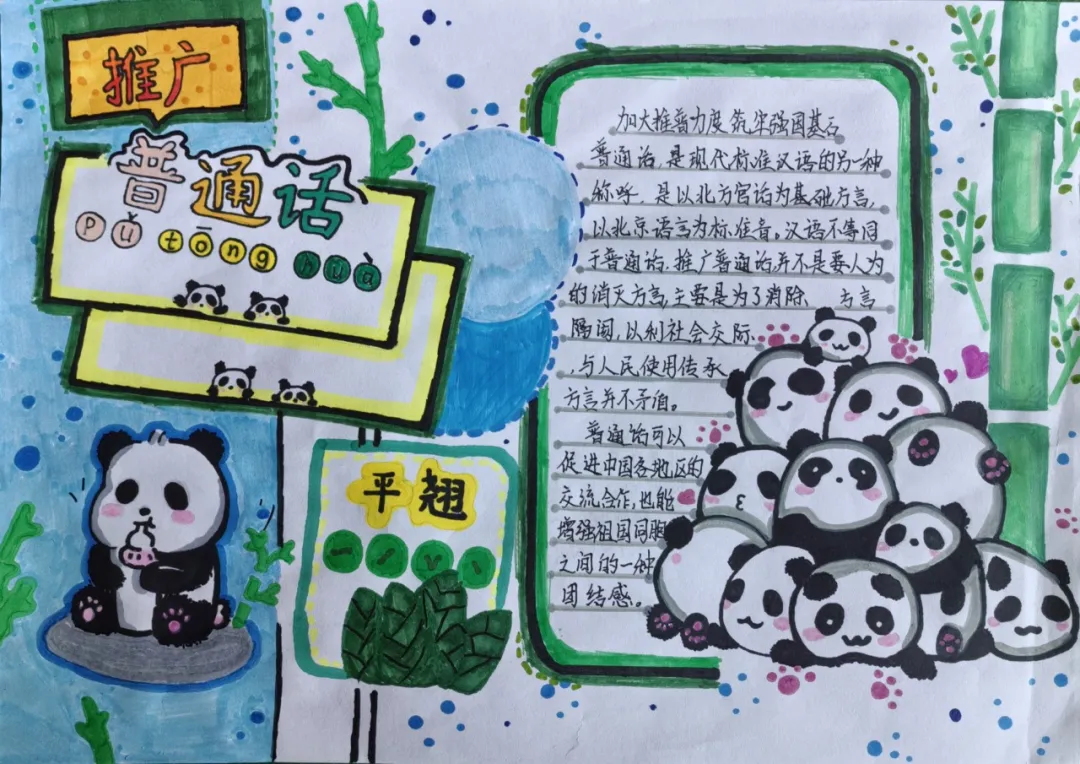 推广
普通话
pǔ tōng huà
平翘
ˉ ˊ ˇ ˋ
加大推普力度筑牢强国基石
普通话,是现代标准汉语的另一种
称呼,是以北方官话为基础方言,
以北京语言为标准音。汉语不等同
于普通话,推广普通话,并不是要人为
的消灭方言,主要是为了消除、方言
隔阂,以利社会交际
,与人民使用传承
方言并不矛盾。
普通话可以
促进中国各地区的
交流合作,也能
增强祖国同胞
之间的一种
团结感。